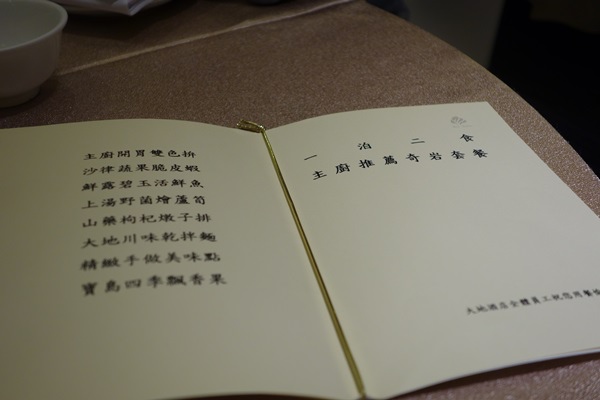 主廚開胃雙色拚
沙律蔬果脆皮蝦
鮮露碧玉活鮮魚
上湯野菌燴蘆筍
山藥枸杞燉子排
大地川味乾拌麵
精緻手做美味點
寶島四季飄香果
一泊二食
主廚推薦奇岩套餐
大地酒店全體員工祝您用餐愉